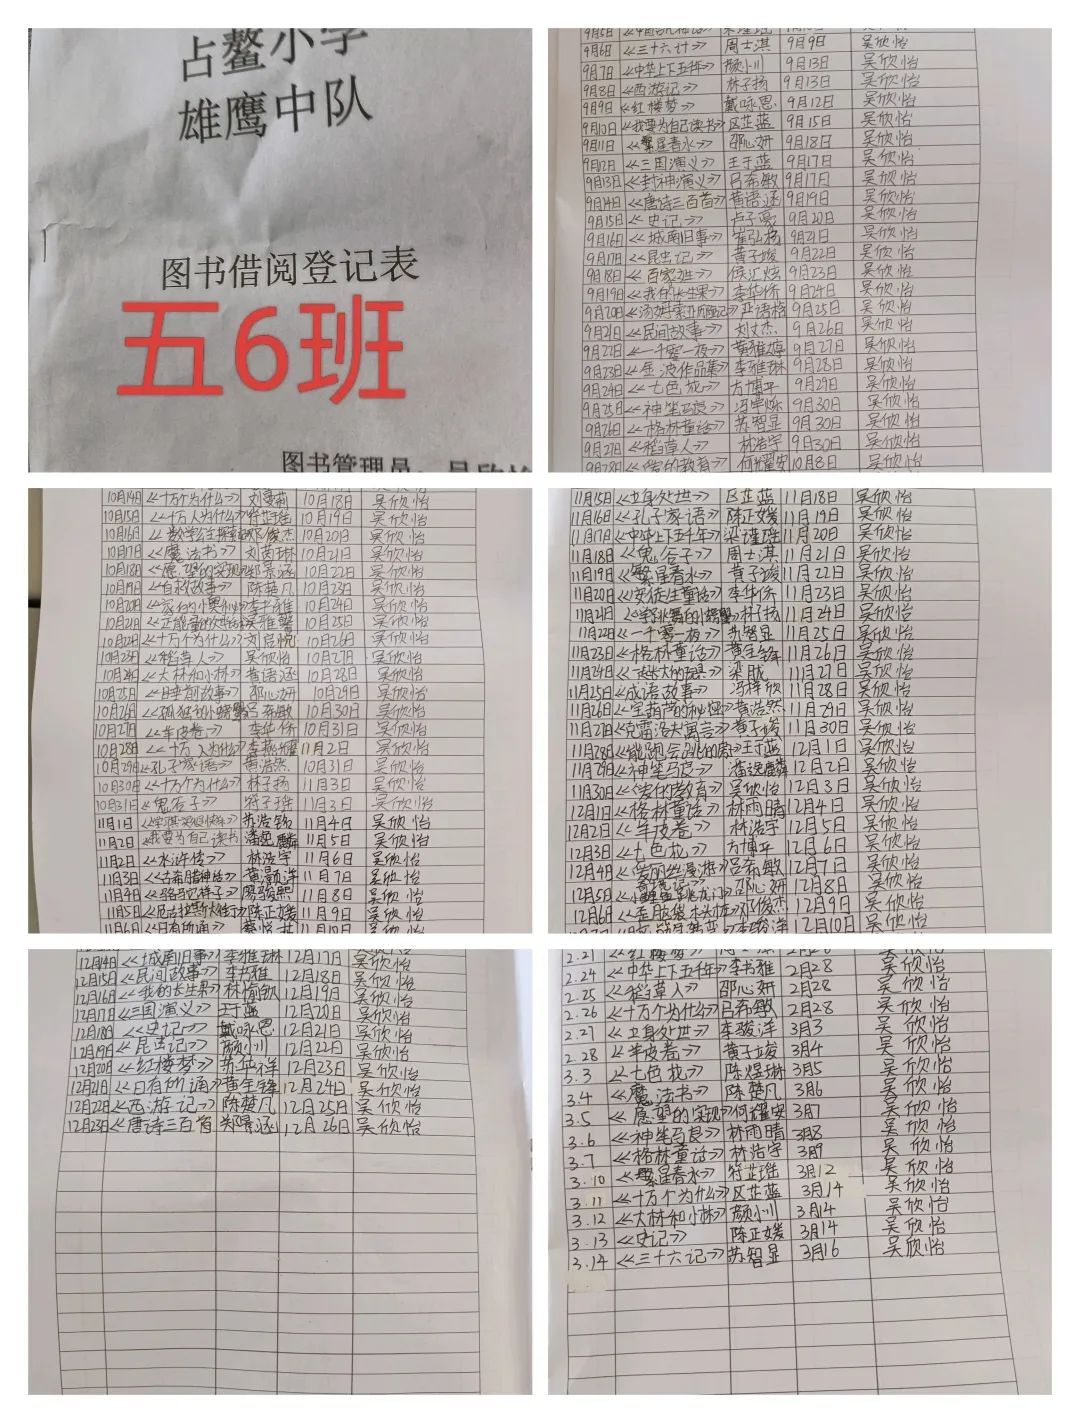 占鳌小学
雄鹰中队
图书借阅登记表
五6班
图书管理员
9月6日 《三十六计》 周士淇 9月9日 吴欣怡
9月7日 《中华上下五千年》 颜小川 9月13日 吴欣怡
9月8日 《西游记》 林子扬 9月13日 吴欣怡
9月9日 《红楼梦》 戴咏思 9月12日 吴欣怡
9月10日 《我要为自己读书》 区芷蓝 9月15日 吴欣怡
9月11日 《繁星春水》 邵心妍 9月18日 吴欣怡
9月12日 《三国演义》 王于蓝 9月17日 吴欣怡
9月13日 《封神演义》 吕希敏 9月17日 吴欣怡
9月14日 《唐诗三百首》 黄语涵 9月19日 吴欣怡
9月15日 《史记》 卢子豪 9月20日 吴欣怡
9月16日 《城南旧事》 崔弘杨 9月21日 吴欣怡
9月17日 《昆虫记》 黄子竣 9月22日 吴欣怡
9月18日 《百家姓》 侯汇炫 9月23日 吴欣怡
9月19日 《我的长生果》 李华侨 9月24日 吴欣怡
9月20日 9月25日 吴欣怡
9月21日 《民间故事》 刘文杰 9月26日 吴欣怡
9月22日 《一千零一夜》 黄雅婷 9月27日 吴欣怡
9月23日 《金波作品集》 李雅琳 9月28日 吴欣怡
9月24日 《七色花》 方博平 9月29日 吴欣怡
9月25日 《神笔马良》 9月30日 吴欣怡
9月26日 《格林童话》 苏智显 9月30日 吴欣怡
9月27日 《稻草人》 林浩宇 9月30日 吴欣怡
9月28日 《爱的教育》 何耀安 10月8日 吴欣怡
10月14日 《十万个为什么》 10月18日 吴欣怡
10月15日 《十万个为什么》 符芷瑶 10月19日 吴欣怡
10月16日 邓俊杰 10月20日 吴欣怡
10月17日 《魔法书》 刘茵琳 10月21日 吴欣怡
10月18日 《愿望的实现》 郑景涵 10月22日 吴欣怡
10月19日 陈楚凡 10月23日 吴欣怡
10月20日 李书雅 10月24日 吴欣怡
10月21日 10月25日 吴欣怡
10月22日 《十万个为什么》 10月26日 吴欣怡
10月23日 《稻草人》 吴欣怡 10月27日 吴欣怡
10月24日 《大林和小林》 黄语涵 10月28日 吴欣怡
10月25日 邵心妍 10月29日 吴欣怡
10月26日 《孤独的小螃蟹》 吕希敏 10月30日 吴欣怡
10月27日 《羊皮卷》 李华侨 10月31日 吴欣怡
10月28日 《十万个为什么》 11月2日 吴欣怡
10月29日 《孔子家语》 黄浩然 10月31日 吴欣怡
10月30日 《十万个为什么》 林子扬 11月3日 吴欣怡
10月31日 《鬼谷子》 符子瑶 11月3日 吴欣怡
11月1日 11月4日 吴欣怡
11月2日 《我要为自己读书》 11月5日 吴欣怡
11月2日 《水浒传》 林浩宇 11月6日 吴欣怡
11月3日 《古希腊神话》 11月7日 吴欣怡
11月4日 《骆驼祥子》 11月8日 吴欣怡
11月5日 陈正媛 11月9日 吴欣怡
11月6日 《日有所诵》 11月10日 吴欣怡
11月15日 《立身处世》 区芷蓝 11月18日 吴欣怡
11月16日 《孔子家语》 陈正媛 11月19日 吴欣怡
11月17日 《中华上下五千年》 梁瑾瑶 11月20日 吴欣怡
11月18日 《鬼谷子》 周士淇 11月21日 吴欣怡
11月19日 《繁星春水》 黄子竣 11月22日 吴欣怡
11月20日 《安徒生童话》 李华侨 11月23日 吴欣怡
11月21日 林子扬 11月24日 吴欣怡
11月22日 《一千零一夜》 苏智显 11月25日 吴欣怡
11月23日 《格林童话》 黄宇锋 11月26日 吴欣怡
11月24日 11月27日 吴欣怡
11月25日 《成语故事》 冯梓欣 11月28日 吴欣怡
11月26日 《宝葫芦的秘密》 黄浩然 11月29日 吴欣怡
11月27日 《克雷洛夫寓言》 黄子竣 11月30日 吴欣怡
11月28日 王于蓝 12月1日 吴欣怡
11月29日 《神笔马良》 12月2日 吴欣怡
11月30日 《爱的教育》 吴欣怡 12月3日 吴欣怡
12月1日 《格林童话》 林雨晴 12月4日 吴欣怡
12月2日 《羊皮卷》 林浩宇 12月5日 吴欣怡
12月3日 《七色花》 方博平 12月6日 吴欣怡
12月4日 《爱丽丝漫游奇境记》 吕希敏 12月7日 吴欣怡
12月5日 《小鲤鱼跳龙门》 邵心妍 12月8日 吴欣怡
12月6日 邓俊杰 12月9日 吴欣怡
12月7日 李骏洋 12月10日 吴欣怡
12月14日 《城南旧事》 李雅琳 12月17日 吴欣怡
12月15日 《民间故事》 李书雅 12月18日 吴欣怡
12月16日 《我的长生果》 林愉敏 12月19日 吴欣怡
12月17日 《三国演义》 王于蓝 12月20日 吴欣怡
12月18日 《史记》 戴咏思 12月21日 吴欣怡
12月19日 《昆虫记》 颜小川 12月22日 吴欣怡
12月20日 《红楼梦》 12月23日 吴欣怡
12月21日 《日有所诵》 黄宇锋 12月24日 吴欣怡
12月22日 《西游记》 陈楚凡 12月25日 吴欣怡
12月23日 《唐诗三百首 郑景涵 12月26日 吴欣怡
2.21 《红楼梦》 2月28 吴欣怡
2.24 《中华上下五千年》 李书雅 2月28 吴欣怡
2.25 《稻草人》 邵心妍 2月28 吴欣怡
2.26 《十万个为什么》 吕希敏 2月28 吴欣怡
2.27 《立身处世》 李骏洋 3月3 吴欣怡
2.28 《羊皮卷》 黄子竣 3月4 吴欣怡
3.3 《七色花》 陈煜琳 3月5 吴欣怡
3.4 《魔法书》 陈楚凡 3月6 吴欣怡
3.5 《愿望的实现》 何耀安 3月7 吴欣怡
3.6 《神笔马良》 林雨晴 3月8 吴欣怡
3.7 《格林童话》 林浩宇 3月9 吴欣怡
3.10 《繁星春水》 符芷瑶 3月12 吴欣怡
3.11 《十万个为什么》 区芷蓝 3月14 吴欣怡
3.12 《大林和小林》 颜小川 3月14 吴欣怡
3.13 《史记》 陈正媛 3月14 吴欣怡
3.14 《三十六记》 苏智显 3月16 吴欣怡